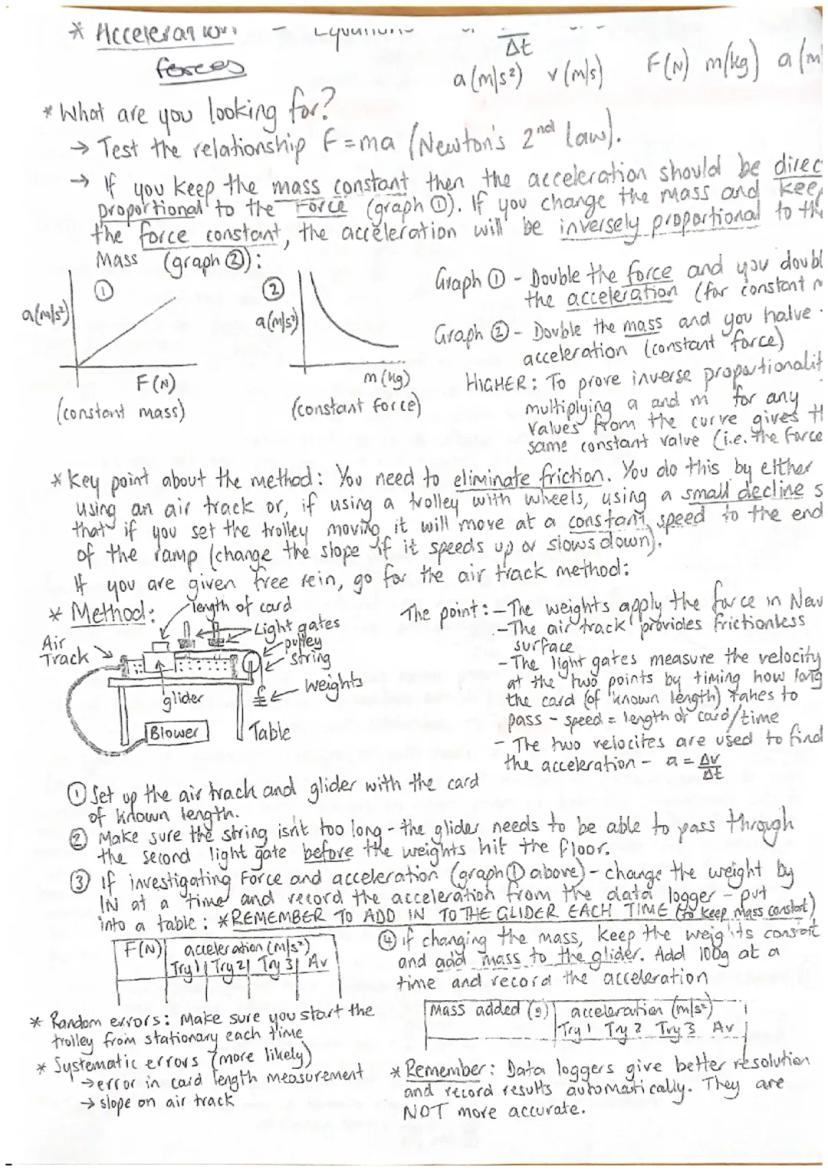 * Acceleration -
forces
Δt
a(m/s²) v(m/s) F(N) m(kg) a(m
* What are you looking for?
→ Test the relationship F=ma (Newton's 2nd law).
→ If you keep the mass constant then the acceleration should be direc
proportional to the Force (graph ①). If you change the mass and keep
the force constant, the acceleration will be inversely proportional to th
Mass (graph ②):
① a(m/s²)
F(N)
(constant mass)
② a(m/s²)
m(kg)
(constant force)
Graph ① - Double the force and you doubl
the acceleration (for constant m
Graph ② - Double the mass and you halve
acceleration (constant force)
HIGHER: To prove inverse proportionalit
multiplying a and m for any
values from the curve gives th
same constant value (i.e. the force
* Key point about the method: You need to eliminate friction. You do this by either
using an air track or, if using a trolley with wheels, using a small decline s
that if you set the trolley moving it will move at a constant speed to the end
of the ramp (change the slope if it speeds up or slows down).
If you are given free rein, go for the air track method:
* Method:
length of card
Light gates
Air
Track
pulley
string
weights
glider
Blower
Table
The point: - The weights apply the force in New
- The air track provides frictionless
surface
- The light gates measure the velocity
at the two points by timing how long
the card (of known length) takes to
pass - speed = length of card/time
- The two velocites are used to find
the acceleration - a = Δv/Δt
① Set up the air track and glider with the card
of known length.
② Make sure the string isn't too long - the glider needs to be able to pass through
the second light gate before the weights hit the floor.
③ If investigating Force and acceleration (graph ① above) - change the weight by
1N at a time and record the acceleration from the data logger - put
into a table: *REMEMBER TO ADD 1N TO THE GLIDER EACH TIME (to keep mass constant)
F(N) acceleration (m/s²)
Try 1 Try 2 Try 3 Av
④ if changing the mass, keep the weights constant
and add mass to the glider. Add 100g at a
time and record the acceleration
Mass added (g) acceleration (m/s²)
Try 1 Try 2 Try 3 Av
* Random errors: Make sure you start the
trolley from stationary each time
* Systematic errors (more likely)
→ error in card length measurement
→ slope on air track
* Remember: Data loggers give better resolution
and record results automatically. They are
NOT more accurate.